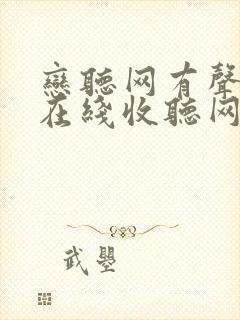 戀聽网有聲
在綫收聽网
武曌